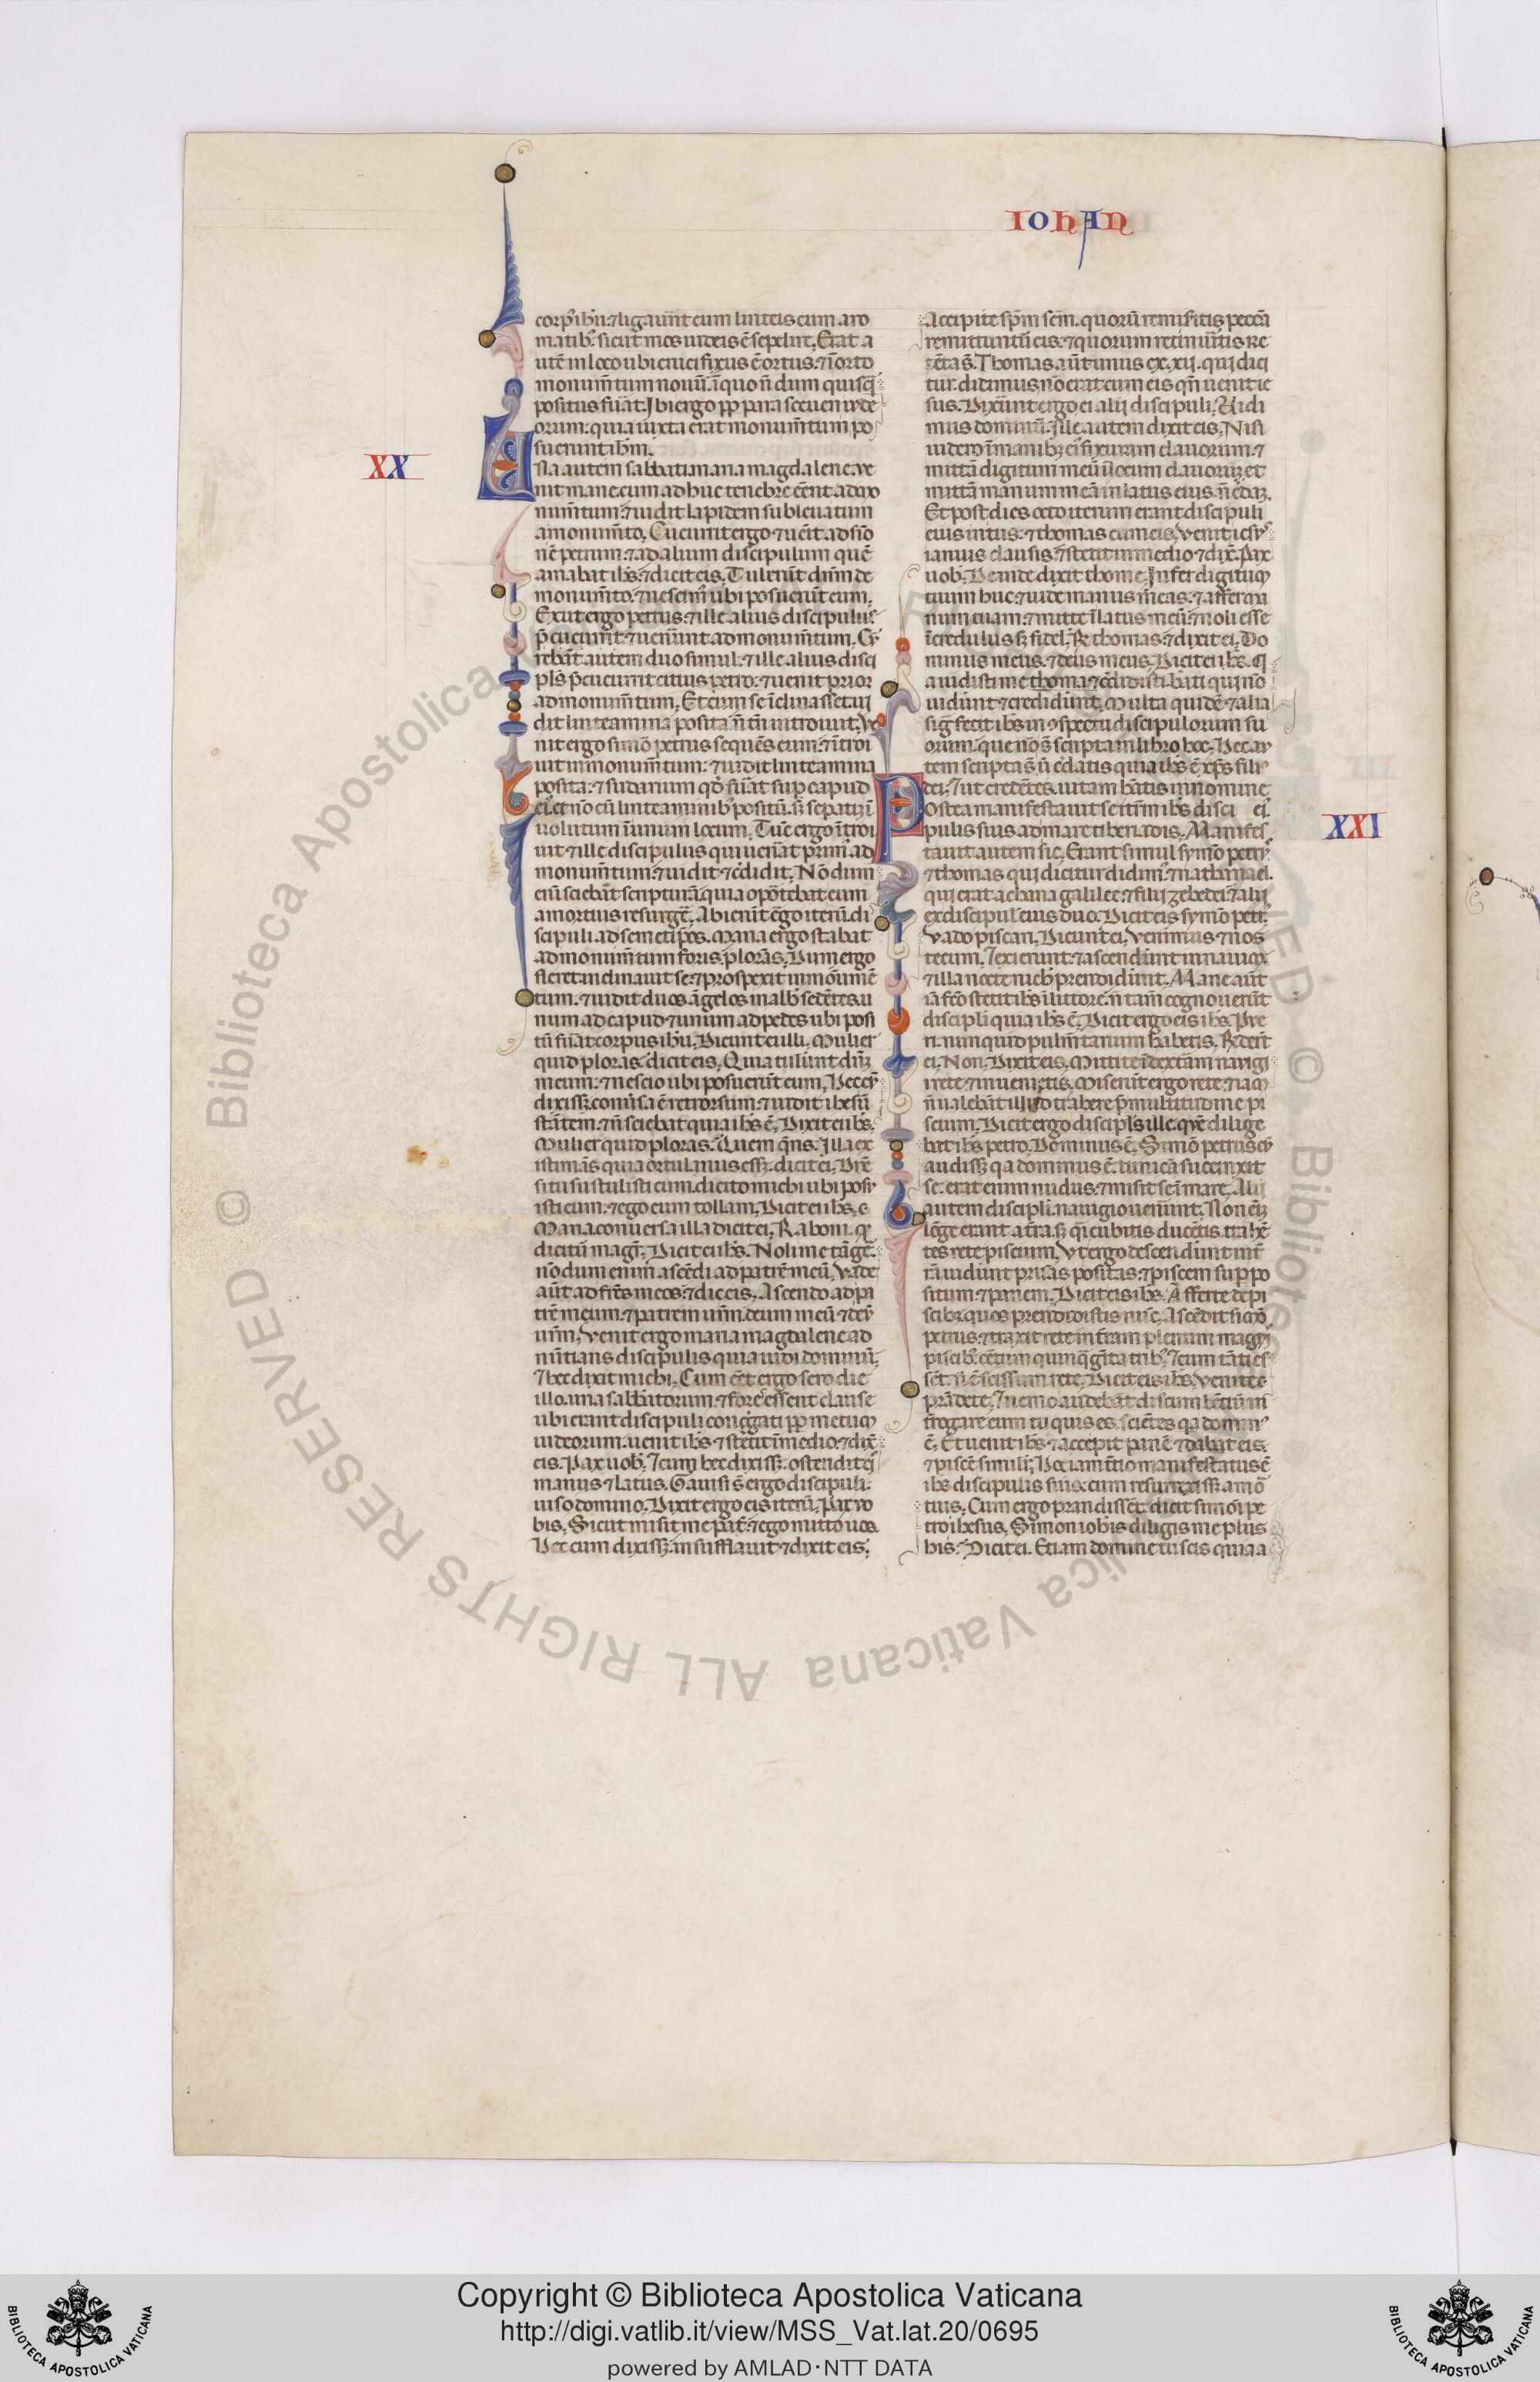 IOHAN
corp̄ ihū. ⁊ ligauer̄nt eum linteis cum aro
matibꝰ. sicut mos iudeis ē sepelire. Erat a
utē in loco ubi crucifixus ē ortus. ⁊ ī orto
monum̄tum nouū. ī quo nō dum quisq̄
positus fuāt. Ibi ergo ꝓp̄ parasceuen iude
orum. quia iuxta erat monum̄tum po
suerunt ihm̄.
XX
Una autem sabbati maria magdalene ue
nit mane. cum adhuc tenebre eēnt ad mo
num̄tum. ⁊ uidit lapidem subleuatum
a monum̄to. Cucurrit ergo ⁊ uēit ad simo
nē petrum. ⁊ ad alium discipulum quē
amabat ihs̄. ⁊ dicit eis. Tulerūt dnm̄ de
monum̄to. ⁊ nescim̄ ubi posuerūt eum.
Exiit ergo petrus. ⁊ ille alius discipulus
p̄cucurrit. ⁊ uenerūnt ad monum̄tum. Cur
rebāt autem duo simul. ⁊ ille alius disci
pls̄ p̄cucurrit citius petro. ⁊ uenit prior
ad monum̄tum. Et cum se īclinasset. ui
dit linteamina posita. n̄ tn̄ introiuit. Ve
nit ergo simō petrus sequēs eum. ⁊ ītroi
uit in monum̄tum. ⁊ uidit linteamina
posita. ⁊ sudarium qđ fuāt suꝑ capud
eiꝰ. nō cū linteaminibꝰ positū. sꝫ separatim
inuolutum ī unum locum. Tūc ergo ītroi
uit ⁊ ille discipulus qui uenāt primꝰ ad
monum̄tum. ⁊ uidit ⁊ cr̄didit. Nō dum
eni sciebāt scripturā. quia oportebat eum
a mortuis resurgē. Abierūt ergo iterū. di
scipuli. ad semetip̄os. Maria ergo stabat
ad monum̄tum foris. plorās. Dum ergo
fleret. inclinauit se. ⁊ prospexit in monum̄
tum. ⁊ uidit duos āgelos in albꝰ sedētes. u
num ad capud ⁊ unum ad pedes ubi posi
tū fuāt corpus ihū. Dicunt ei illi. Mulier
quid ploras. dicit eis. Quia tulerūt dn̄m
meum. ⁊ nescio ubi posuerūt eum. Hec cū
dixissꝫ. conūsa ē retrorsum. ⁊ uidit ihesū
stātem. ⁊ n̄ sciebat quia ihs̄ ē. Dixit ei ihs̄.
Mulier quid ploras. Quem qr̄is. Illa ex
istimās quia ortulanus essꝫ. dicit ei. Dn̄e
si tu sustulisti eum. dicito michi ubi posu
isti eum. ⁊ ego eum tollam. Dicit ei ihs̄. 
Maria. conuersa illa dicit ei. Raboni. qđ
dicitū magr̄. Dicit ei ihs̄. Noli me tāgē.
nō dum enim ascēdi ad patrē meū. Vade
aūt ad fr̄es meos. ⁊ dic eis. Ascendo ad pa
trē meum. ⁊ patrem ur̄m. deum meū ⁊ deū
ur̄m. Venit ergo maria magdalene ad
nūtians discipulis quia uidi dominū.
⁊ hec dixit michi. Cum eēt ergo sero die
illo. una sabbatorum. ⁊ fores essent clause
ubi erant discipuli congr̄gati ꝓp̄ metum
iudeorum. uenit ihs̄ ⁊ stetit ī medio. ⁊ dix̄
eis. Pax uobꝭ. ⁊ cum hec dixissꝫ. ostendit eꝭ
manus ⁊ latus. Gauisi s̄ ergo discipuli.
uiso domino. Dixit ergo eis iterū. Pax uo
bis. Sicut misit me pat̄. ⁊ ego mitto uos.
Hec cum dixissꝫ. insufflauit ⁊ dixit eis.
Accipite sp̄m scm̄. quorū remiseritis peccā
remittuntū eis. ⁊ quorum retinuer̄itis re
tēta s̄. Thomas aūt unus ex .xii. qui dici
tur didimus. nō erat cum eis qn̄ uenit ie
sus. Dixerūnt ergo ei alii discipuli. Uidi
mus dominū. Ille autem dixit eis. Nisi
uidero ī manibꝫ eiꝰ fixuram clauorum. ⁊
mittā digitum meū ī locum clauorꝫ. et
mittā manum meā in latus eius. n̄ cr̄dā.
Et post dies octo iterum erant discipuli
eius intus. ⁊ thomas cum eis. Venit iesꝰ
ianuis clausis. ⁊ stetit in medio ⁊ dix̄. Pax
uobꝭ. Deinde dixit thome. Infer digitum
tuum huc. ⁊ uide manus meas. ⁊ affer ma
num tuam. ⁊ mitte ī latus meū. ⁊ noli esse
īcredulus sꝫ fidelꝭ. R̄ thomas. ⁊ dixit ei. Do
minus meus. ⁊ deus meus. Dicit ei ihs̄. Q
a uidisti me thoma ⁊ cr̄didisti. bāti qui nō
uidūnt ⁊ credidūnt. Multa quidē ⁊ alia
siḡ fecit ihs̄ in ꝯspectu discipulorum su
orum. que nō s̄ scripta in libro hoc. Hec au
tem scripta s̄. ut cr̄datis quia ihs̄ ē xp̄s filiꝰ
dei. ⁊ ut credētes. uitam hēatis in nomine
eiꝰ.
XXI
Postea manifestauit se iterū ihs̄ disci
pulis suis ad mare tiberiadis. Manifes
tauit autem sic. Erant simul symō petrꝰ
⁊ thomas qui dicitur didimꝰ. ⁊ nathanael.
qui erat a chana galilee. ⁊ filii zebedei. ⁊ alii
ex discipulꝭ eius duo. Dicit eis symō petrꝰ.
Vado piscari. Dicunt ei. Venimus ⁊ nos
tecum. ⁊ exierunt. ⁊ ascendūnt in nauim.
⁊ illa nocte nichꝭ prendidūnt. Mane aūt
iā fc̄o stetit ihs̄ ī littore. n̄ tam̄ cognouerūt
discipli quia ihs̄ ē. Dicit ergo eis ihs̄. Pue
ri. nunquid pulm̄tarium habetis. R̄derūt
ei. Non. Dixit eis. Mittite ī dextām nauigi
i rete. ⁊ inuenietis. Miserūt ergo rete. ⁊ iam
n̄ ualebāt illud trahere p̄ multitudine pi
scium. Dicit ergo discipls̄ ille. quē dilige
bat ihs̄ petro. Dominus ē. Simō petrus cū
audissꝫ qa dominus ē. tunicā succinxit
se. erat enim nudus. ⁊ misit se ī mare. Alii
autem discipli. nauigio uenerūnt. Non enī
lōge erant a tr̄ra. sꝫ q̄i cubitis ducētis. trahē
tes rete piscium. Vt ergo descendūnt in tr̄
rā. uidūnt prunas positas. ⁊ piscem suꝑpo
situm. ⁊ panem. Dicit eis ihs̄. Afferte de pi
scibꝰ. quos prendidistis nūc. Ascēdit simō
petrus. ⁊ traxit rete in tr̄ram. plenum magnꝭ
piscibꝰ. cētum quinq̄gīta tribꝰ. ⁊ cum tāti es
sēt. n̄ ē scissum rete. Dicit eis ihs̄. Venite
prādete. ⁊ nemo audebat discumbētiū in
t̄rogare eum tu quis es. sciētes qa dominꝰ
ē. Et uenit ihs̄ ⁊ accepit panē ⁊ dabat eis.
⁊ piscē similꝭ. Hoc iam t̄tio manifestatus ē
ihs̄ discipulis suis. cum resurrexissꝫ a mor
tuis. Cum ergo prandissēt. dicit simōi pe
tro ihesus. Simon iohīs diligis me plus
his. Dicit ei. Etiam domine tu scis quia a
Copyright © Biblioteca Apostolica Vaticana
http://digi.vatlib.it/view/MSS_Vat.lat.20/0695
powered by AMLAD·NTT DATA
BIBLIOTECA APOSTOLICA VATICANA
BIBLIOTECA APOSTOLICA VATICANA
© Biblioteca Apostolica Vaticana ALL RIGHTS RESERVED